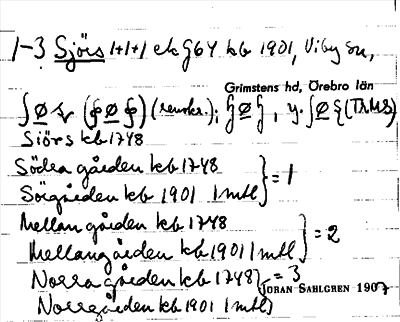 1-3 Sjörs 1+1+1 ek G64 kb 1901, Viby sn,
Grimstens hd, Örebro län
Siörs kb 1748
Södra gården kb 1748
Sörgården kb 1901 1 mtl } = 1
Mellan gården kb 1748
Mellangården kb 1901 1 mtl } = 2
Norra gården kb 1748 } = 3
Norrgården kb 1901 1 mtl
JÖRAN SAHLGREN 1907